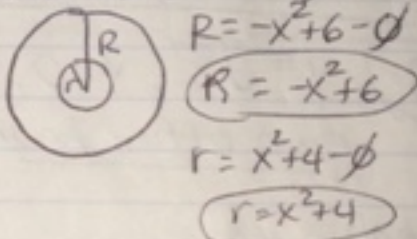 R
r
R = -x²+6-0
R = -x²+6
r = x²+4-0
r = x²+4